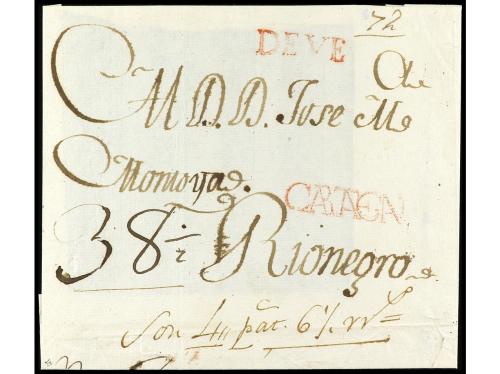 72
DEVE
A D. D. Jose Me
Montoya.
CARTAGENA
38 1/2 Rionegro.
Son 4 pat. 6½ rrs